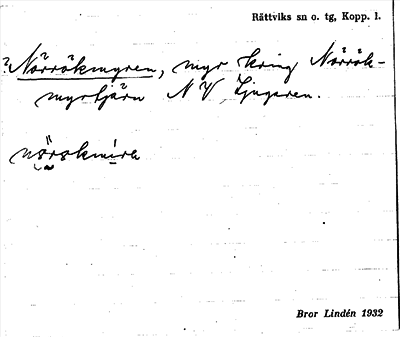 Rättviks sn o. tg, Kopp. l.
?Nörrökmyren, myr kring Nörrök-
myrtjärn NV Ljugaren.
nörrokmira
Bror Lindén 1932